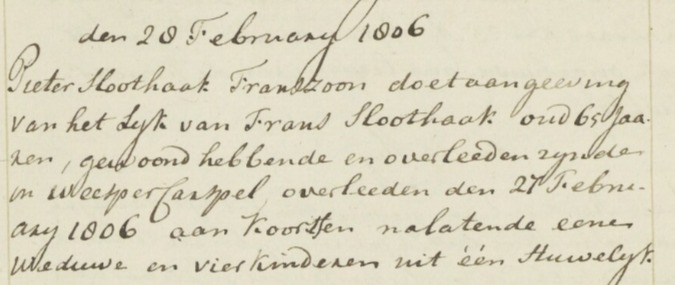 den 28 February 1806
Pieter Sloothaak Franszoon doet aangeeving
van het Lyk van Frans Sloothaak oud 65 Jaa-
ren, gewoond hebbende en overleeden zynde
in Weesper Carspel, overleeden den 27 Febru-
ary 1806 aan Koortsen nalatende eene
Weduwe en vier kinderen uit één Huwelyk